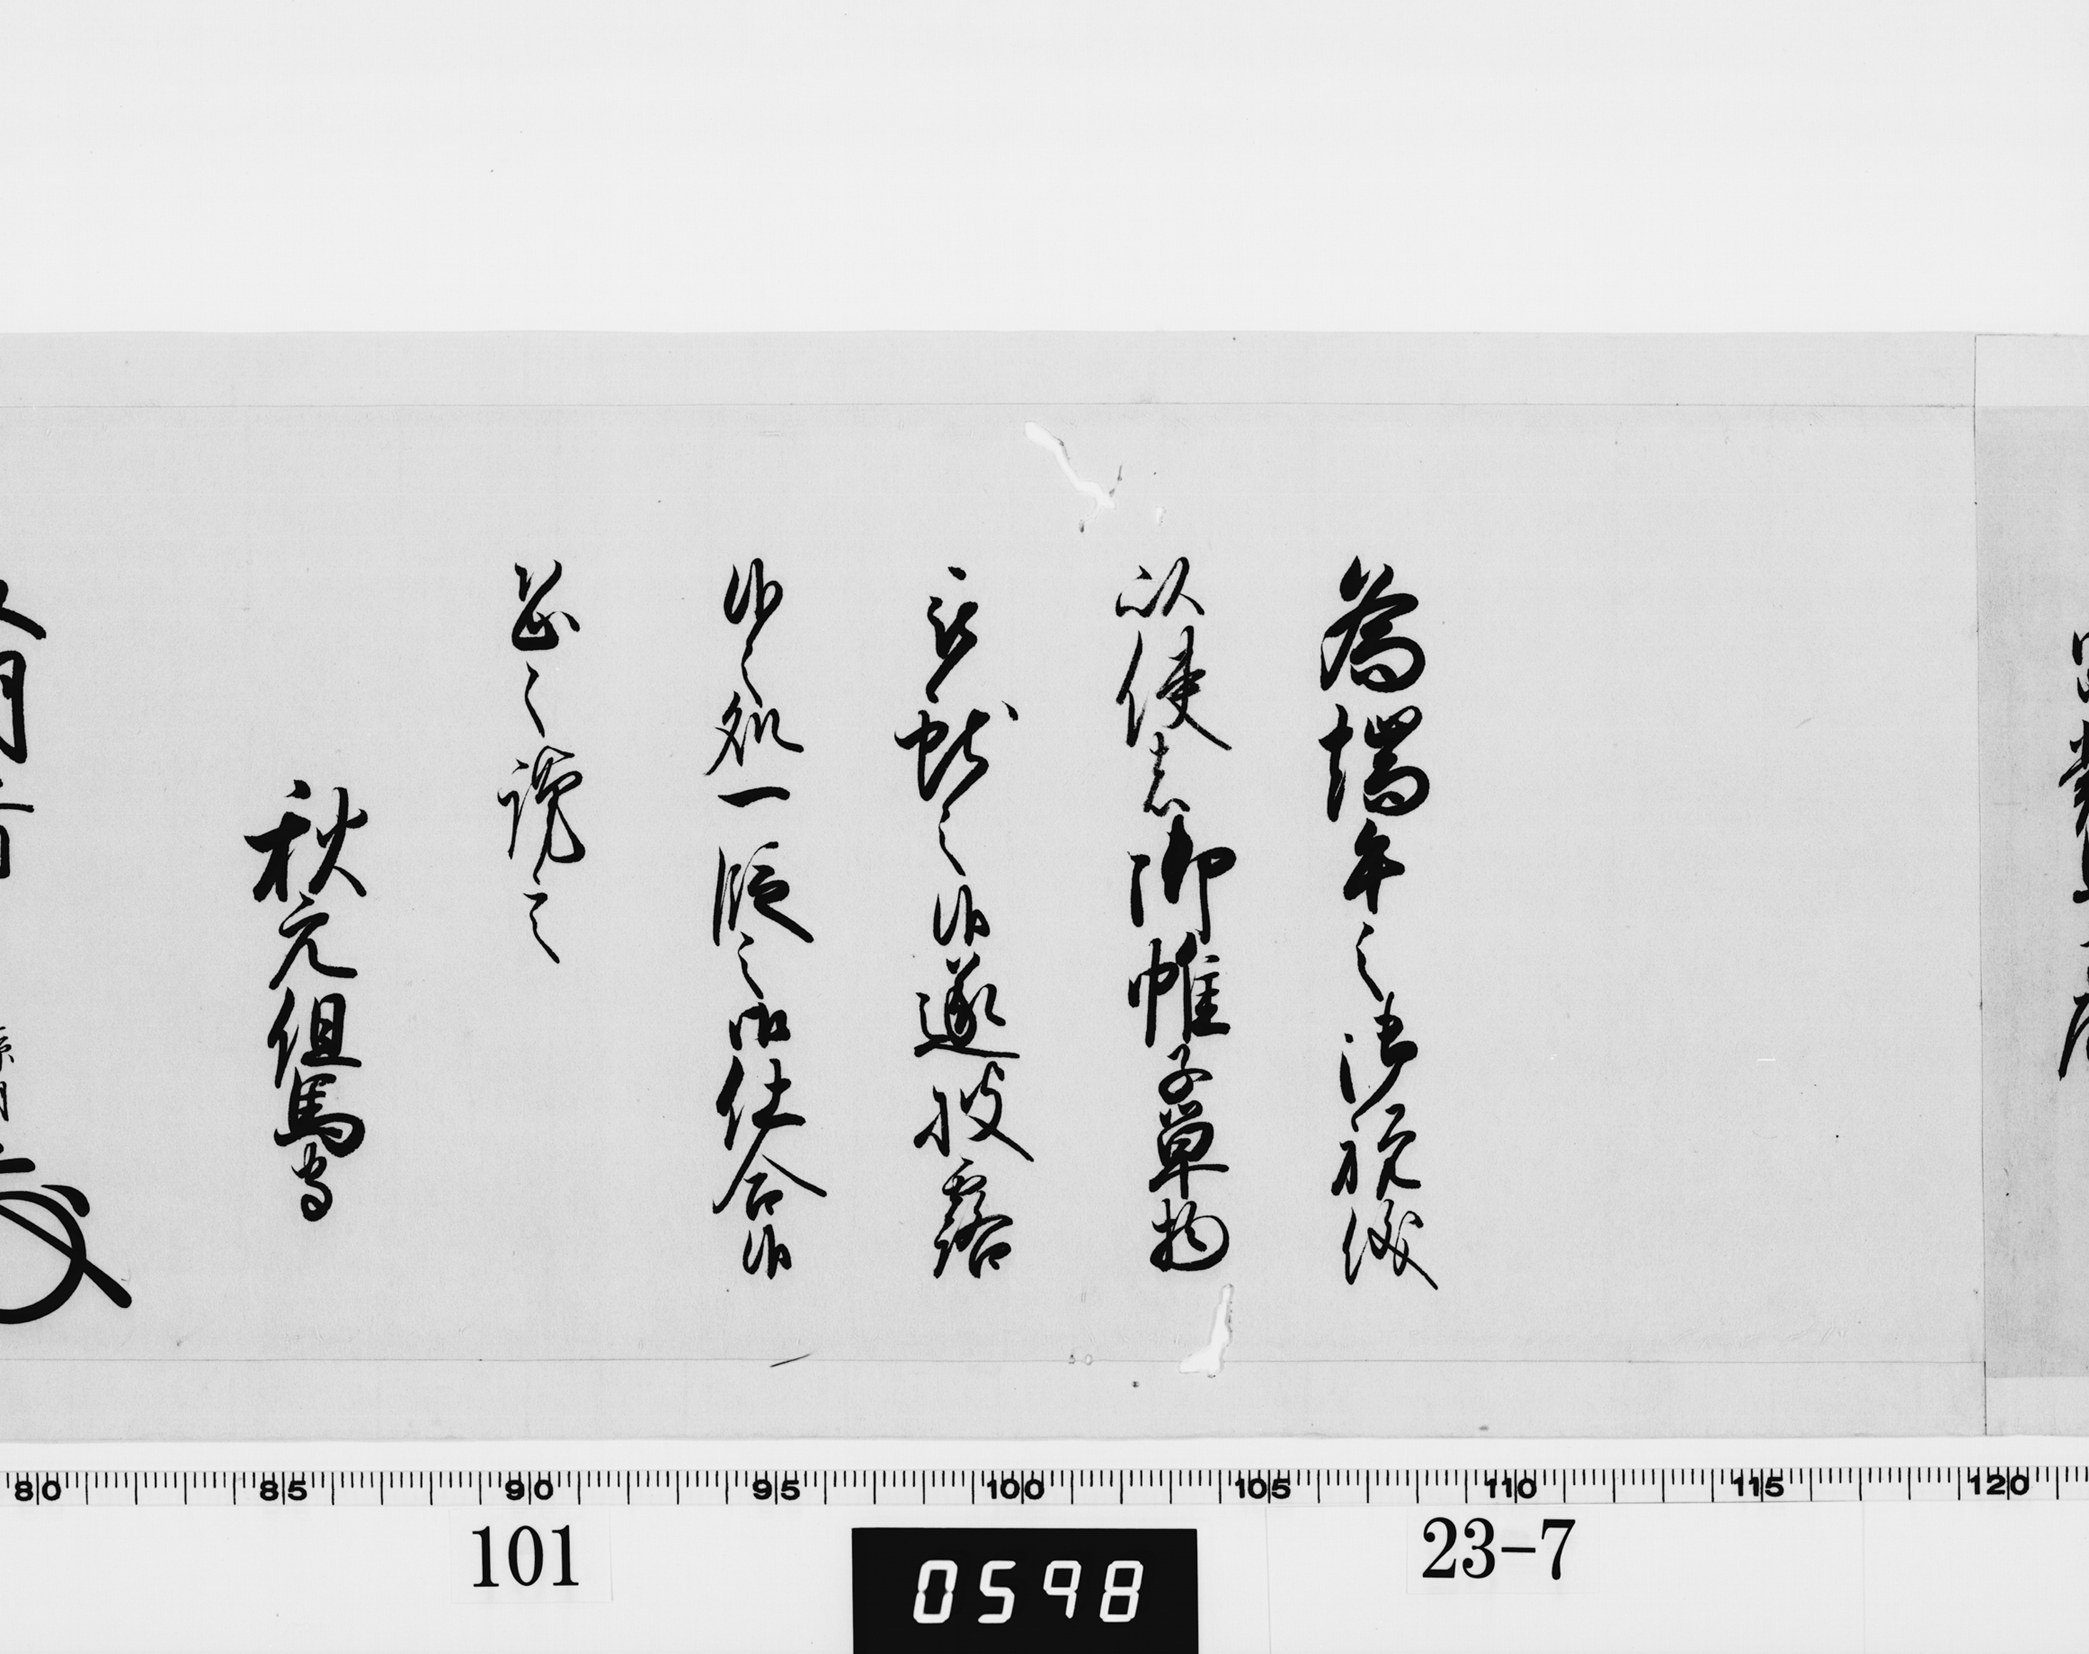 為端午之御祝儀
以使者御帷子単物
被献之候遂披露
候之処一段之御仕合候
恐々謹言
秋元但馬守
80 85 90 95 100 105 110 115 120
101
0598
23-7